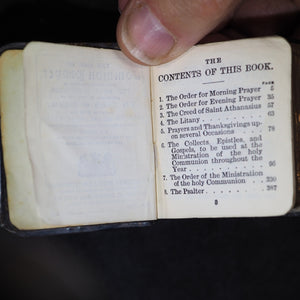 THE
CONTENTS OF THIS BOOK.
PAGE
1. The Order for Morning Prayer 5
2. The Order for Evening Prayer 35
3. The Creed of Saint Athanasius 57
4. The Litany . . . . 63
5. Prayers and Thanksgivings up-
on several Occasions . . 78
6. The Collects, Epistles, and
Gospels, to be used at the
Ministration of the holy
Communion throughout the
Year . . . . 96
7. The Order of the Ministration
of the holy Communion . . 330
8. The Psalter . . . . 387
3